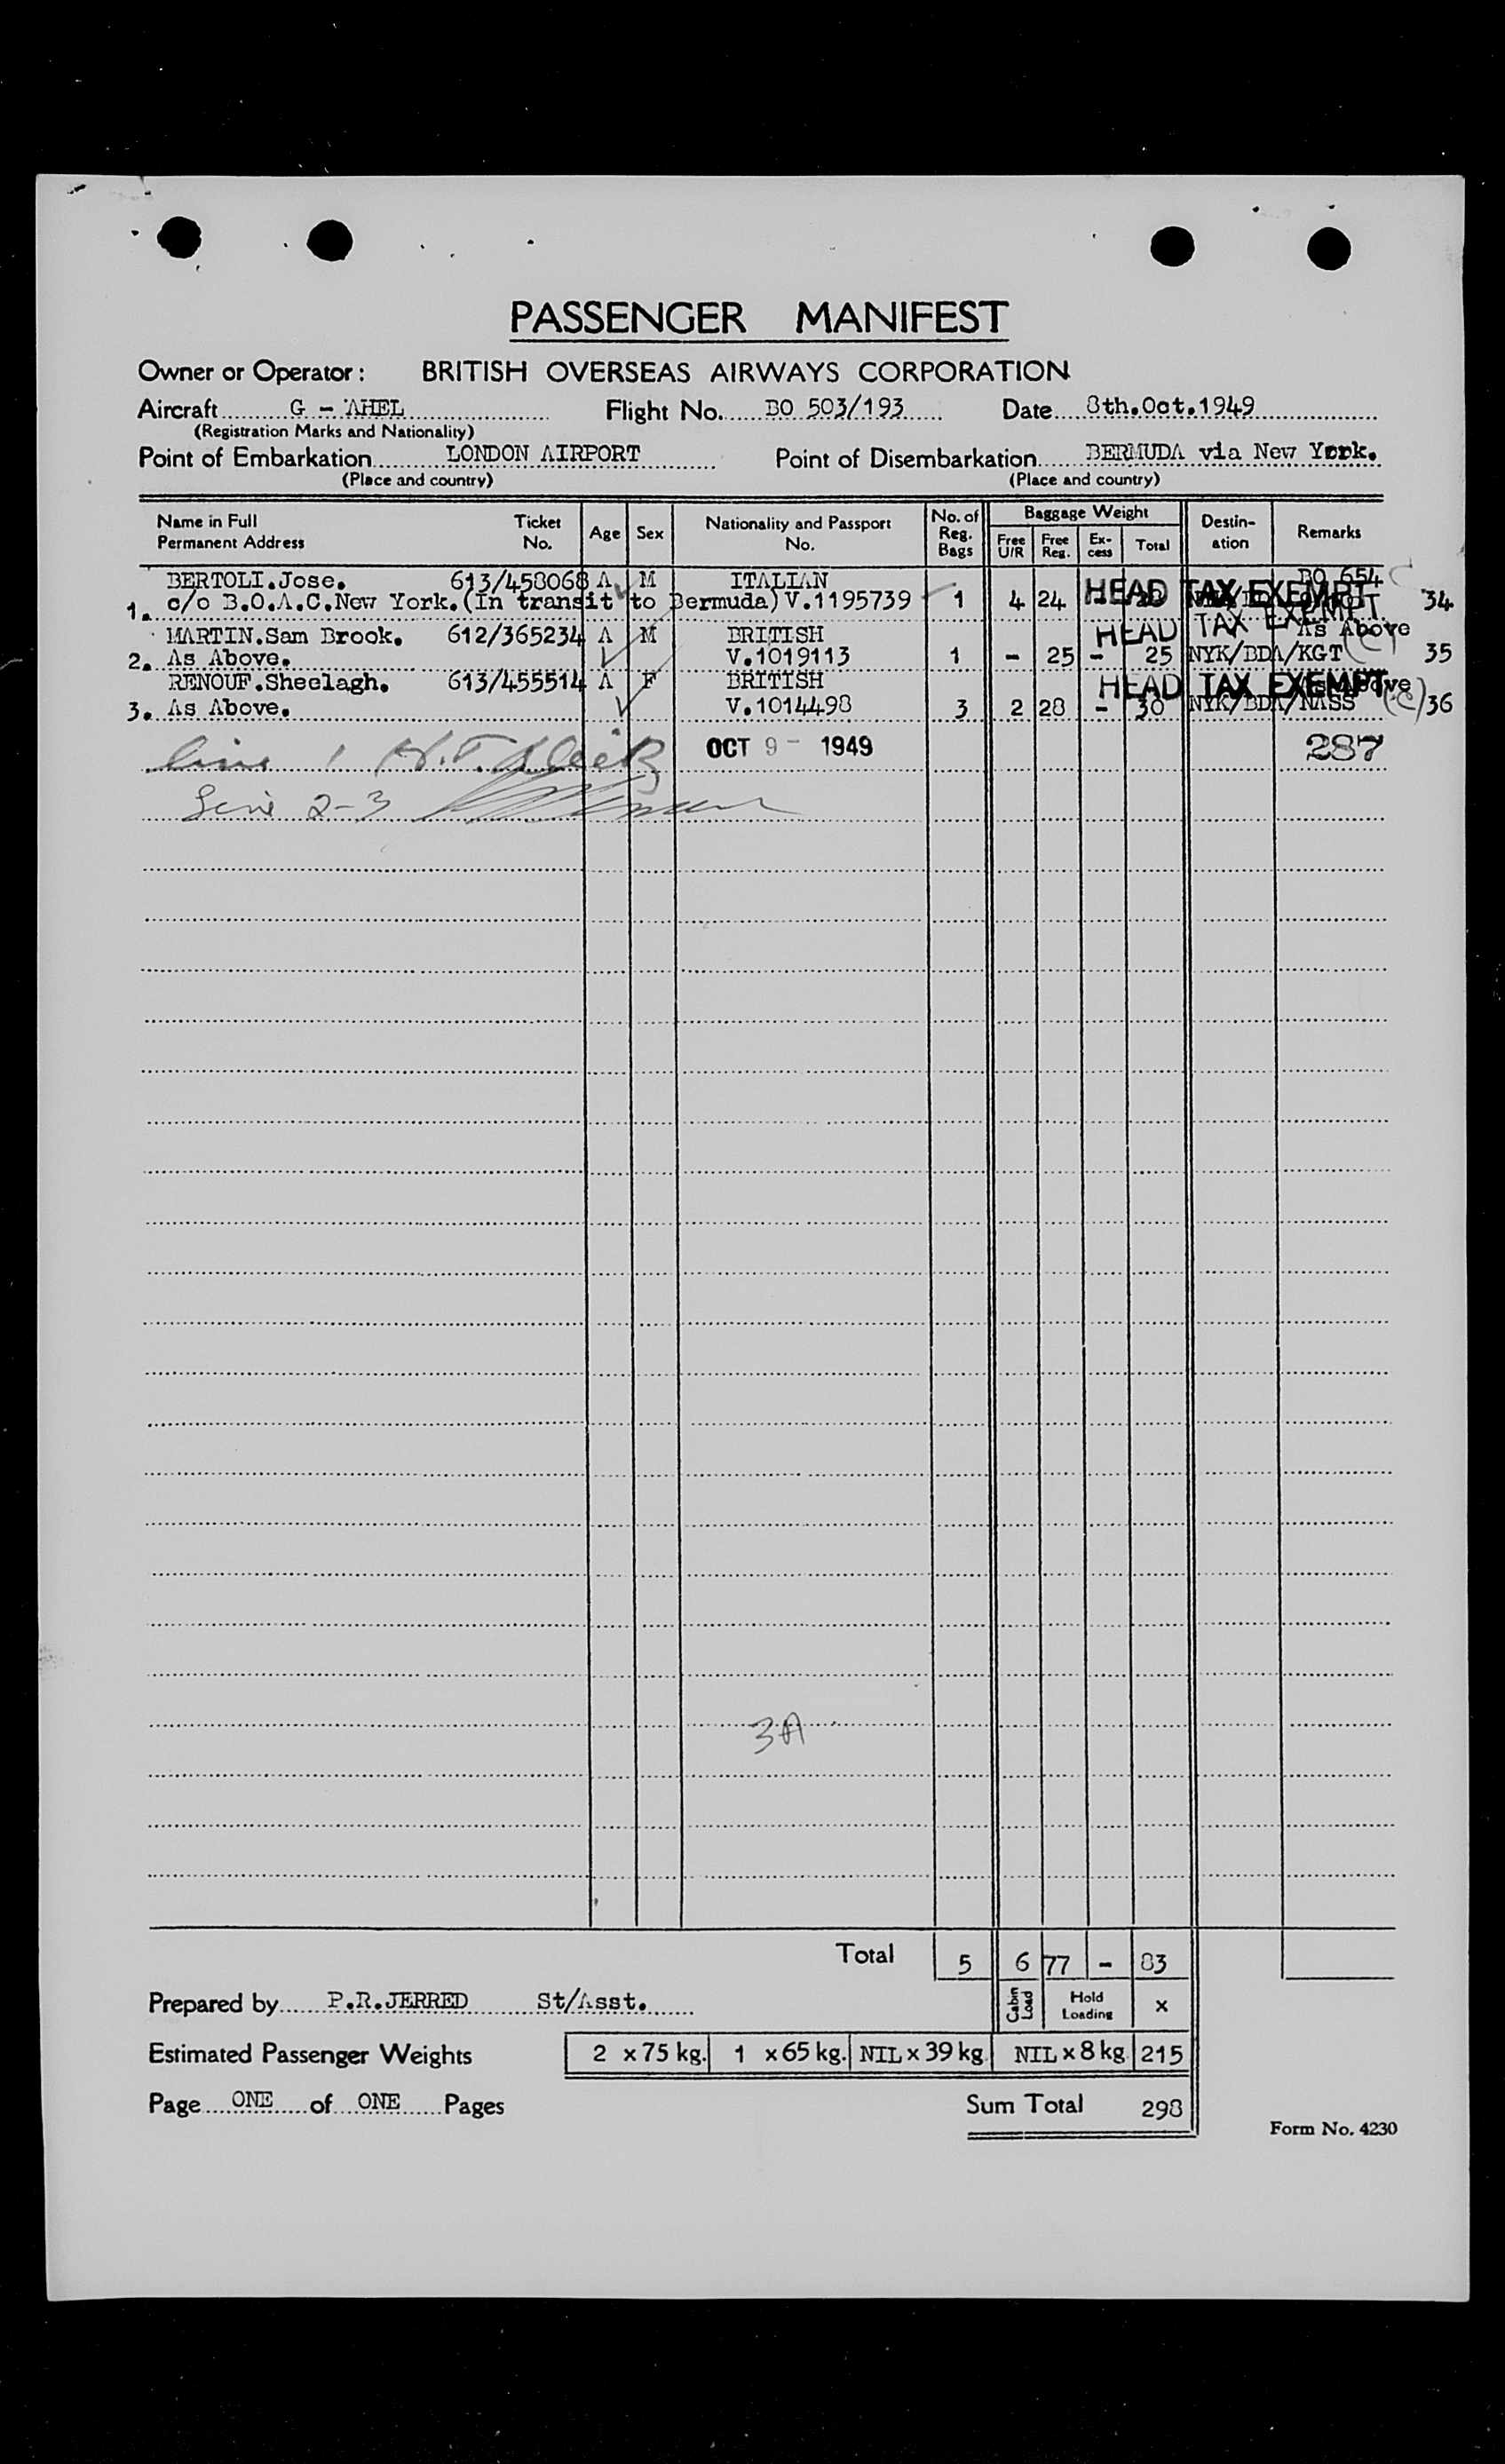 PASSENGER MANIFEST
Owner or Operator: BRITISH OVERSEAS AIRWAYS CORPORATION
Aircraft G - AHEL Flight No. BO 503/193 Date 8th.Oct.1949
(Registration Marks and Nationality)
Point of Embarkation LONDON AIRPORT Point of Disembarkation BERMUDA via New York.
(Place and country) (Place and country)
Name in Full Permanent Address Ticket No. Age Sex Nationality and Passport No. No. of Reg. Bags Baggage Weight Free U/R Free Reg. Ex-cess Total Destin-ation Remarks
BERTOLI.Jose. 613/458068 A M ITALIAN BO 654 C
1. c/o B.O.A.C.New York.(In transit to Bermuda) V.1195739 1 4 24 - HEAD TAX EXEMPT 34
MARTIN.Sam Brook. 612/365234 A M BRITISH HEAD TAX EXEMPT As Above
2. As Above. V.1019113 1 - 25 - 25 NYK/BDA/KGT (C) 35
RENOUF.Sheelagh. 613/455514 A F BRITISH HEAD TAX EXEMPT
3. As Above. V.1014498 3 2 28 - 30 NYK/BDA/NASS (C) 36
line 1 H.T. OCT 9 - 1949 287
Line 2-3
3A
Total 5 6 77 - 83
Prepared by P.R.JERRED St/Asst. Cabin Load Hold Loading x
Estimated Passenger Weights 2 x 75 kg. 1 x 65 kg. NIL x 39 kg NIL x 8 kg 215
Page ONE of ONE Pages Sum Total 298
Form No. 4230